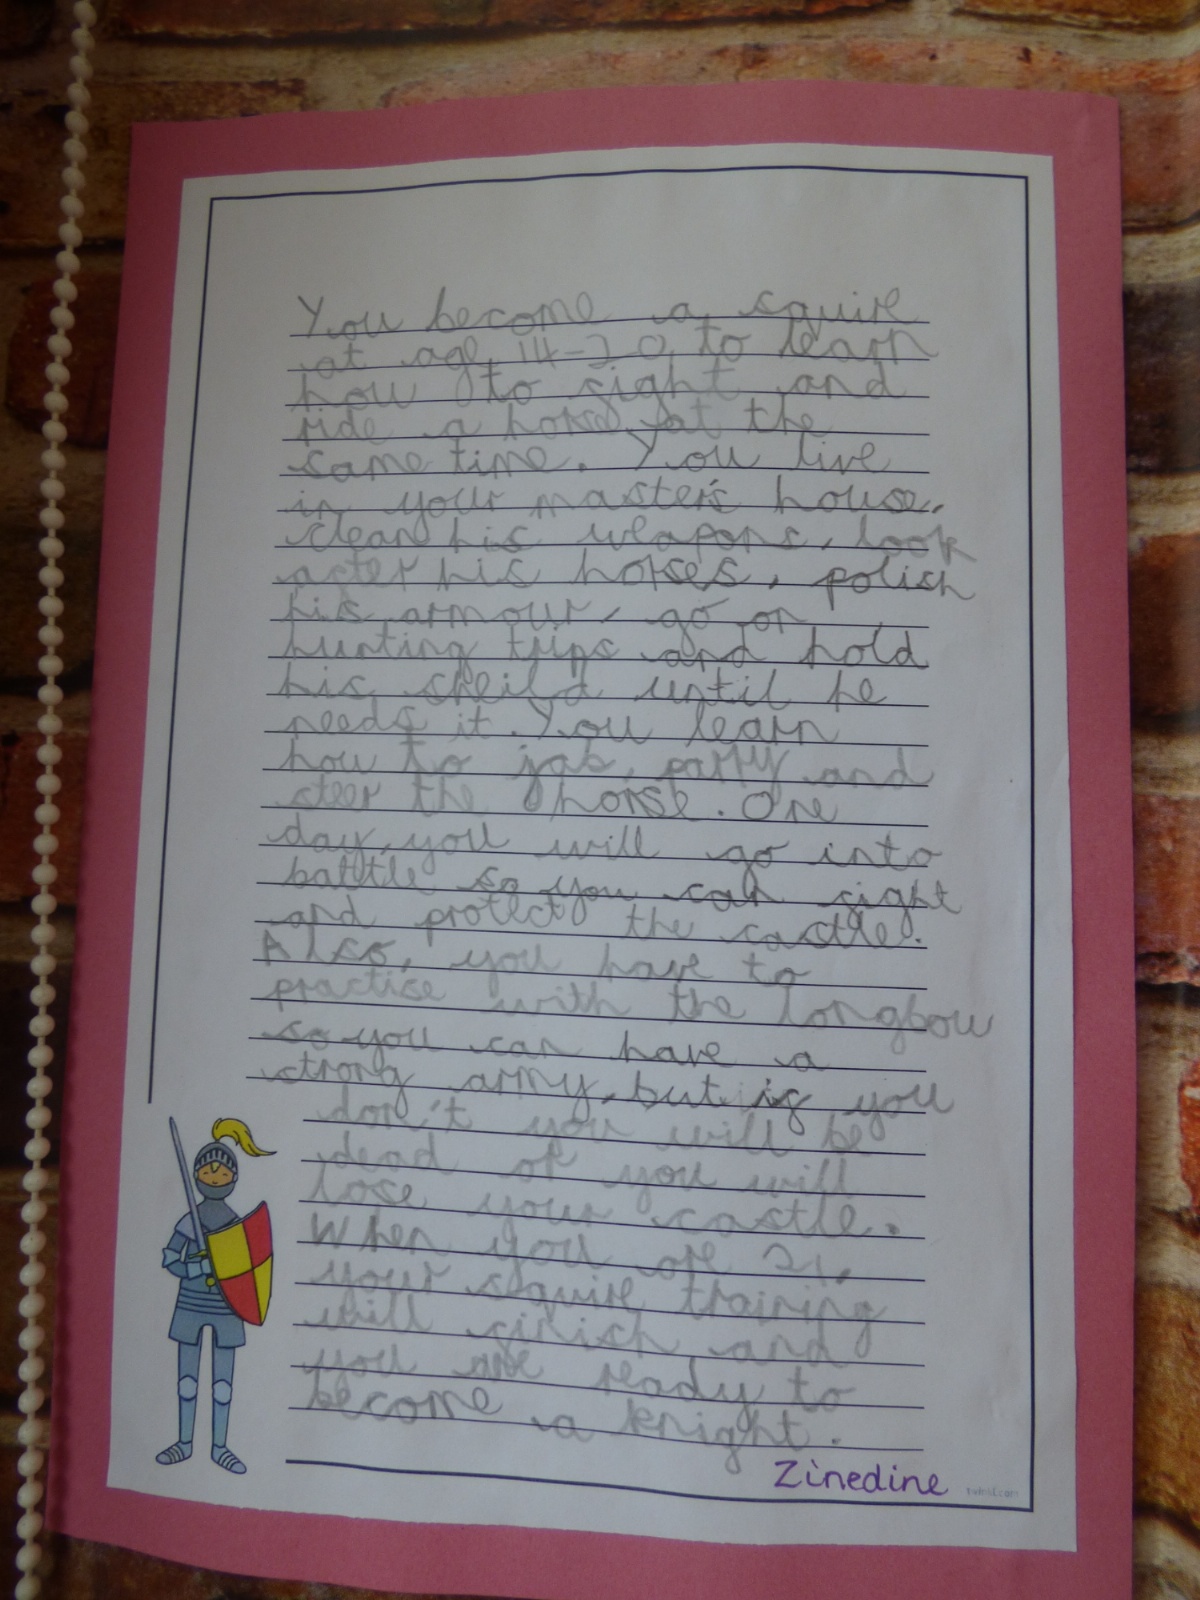 You become a squire
at age 14-20 to learn
how to fight and
ride a horse at the
same time. You live
in your master's house,
clean his weapons, look
after his horses, polish
his armour, go on
hunting trips and hold
his sheild until he
needs it. You learn
how to jab, parry and
steer the horse. One
day, you will go into
battle so you can fight
and protect the castle.
Also, you have to
practise with the longbow
so you can have a
strong army, but if you
don't you will be
dead or you will
lose your castle.
When you are 21,
your squire training
will finish and
you are ready to
become a knight.
Zinedine
twinkl.com